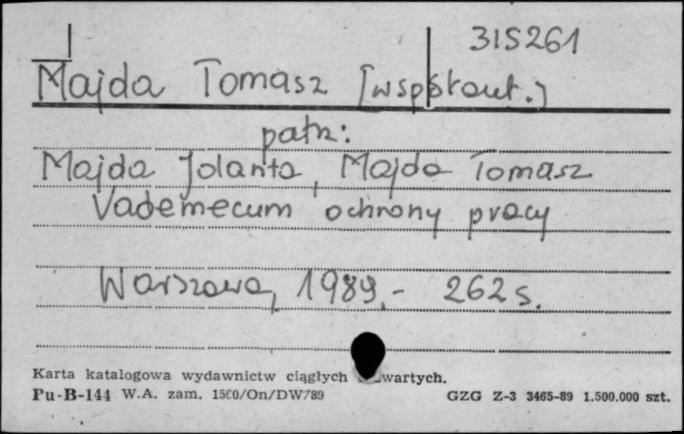 315261
Majda Tomasz [współaut.]
patrz:
Majda Jolanta, Majda Tomasz
Vademecum ochrony pracy
Warszawa, 1989.- 262 s.
Karta katalogowa wydawnictw ciągłych wartych.
Pu-B-144 W.A. zam. 1500/On/DW/89 GZG Z-3 3465-89 1.500.000 szt.